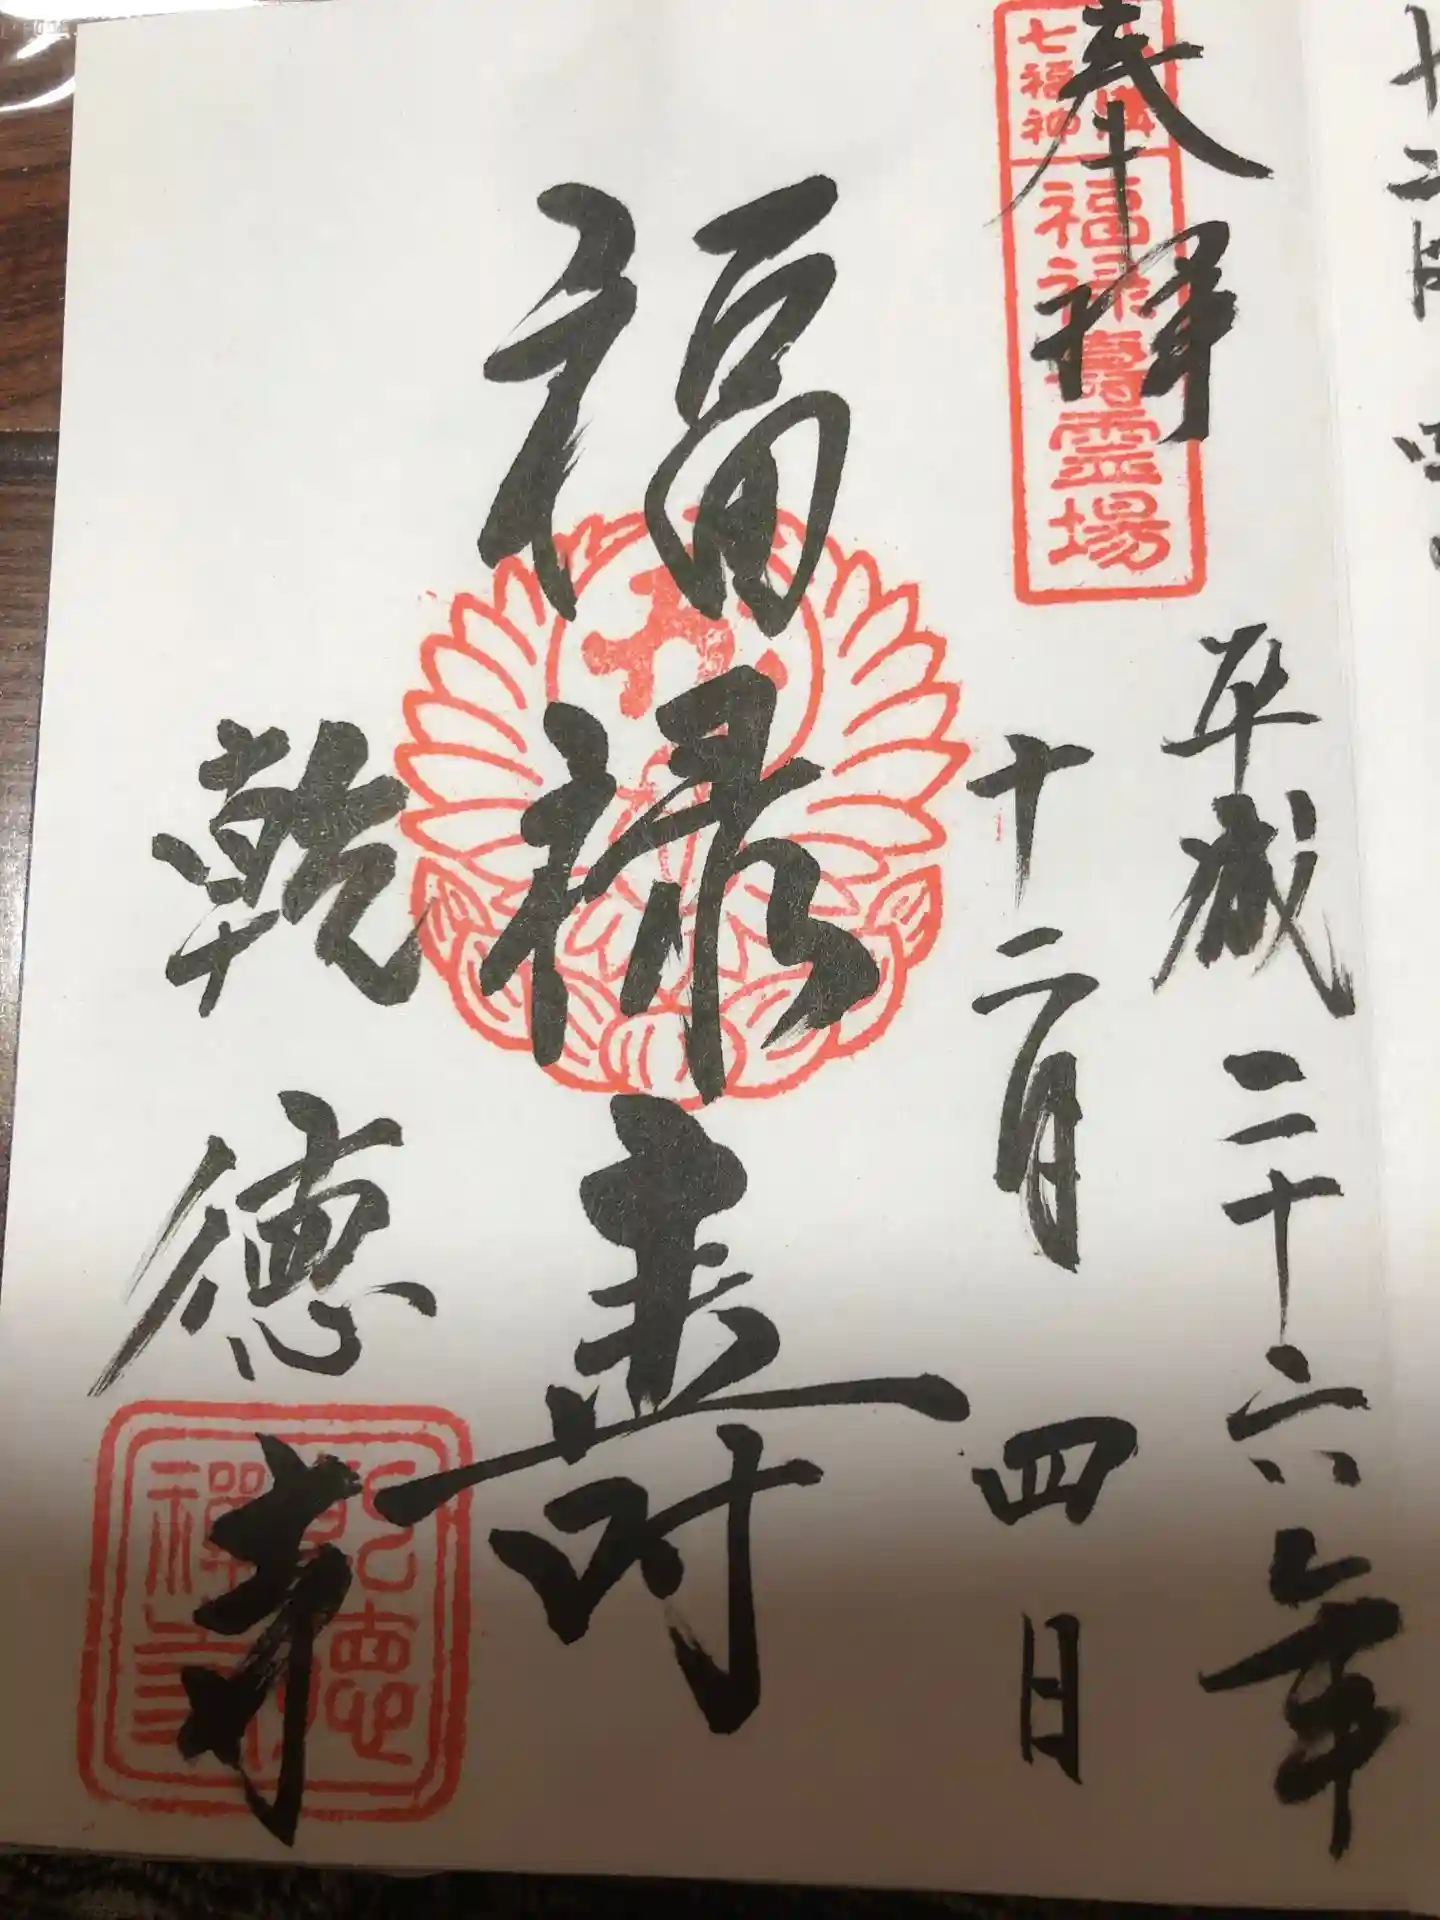 奉拝
七福神
福禄壽霊場
平成二十六年
十二月四日
福禄寿
乾徳寺
乾徳
禅寺
十二月